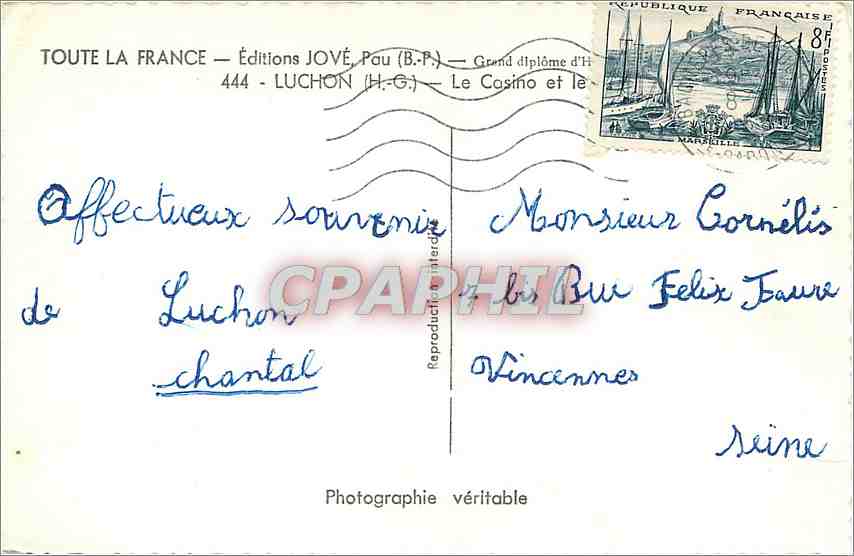 TOUTE LA FRANCE — Éditions JOVÉ, Pau (B.-P.) — Grand diplôme d'H
444 - LUCHON (H.-G.) — Le Casino et le
RÉPUBLIQUE FRANÇAISE
8F
POSTES
MARSEILLE
Affectueux souvenir
de Luchon
chantal
Reproduction interdite
CPAPHIL
Monsieur Cornélis
7 bis Rue Felix Faure
Vincennes
Seine
Photographie véritable